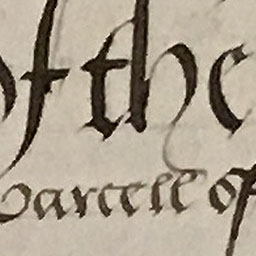 of the
parcell of